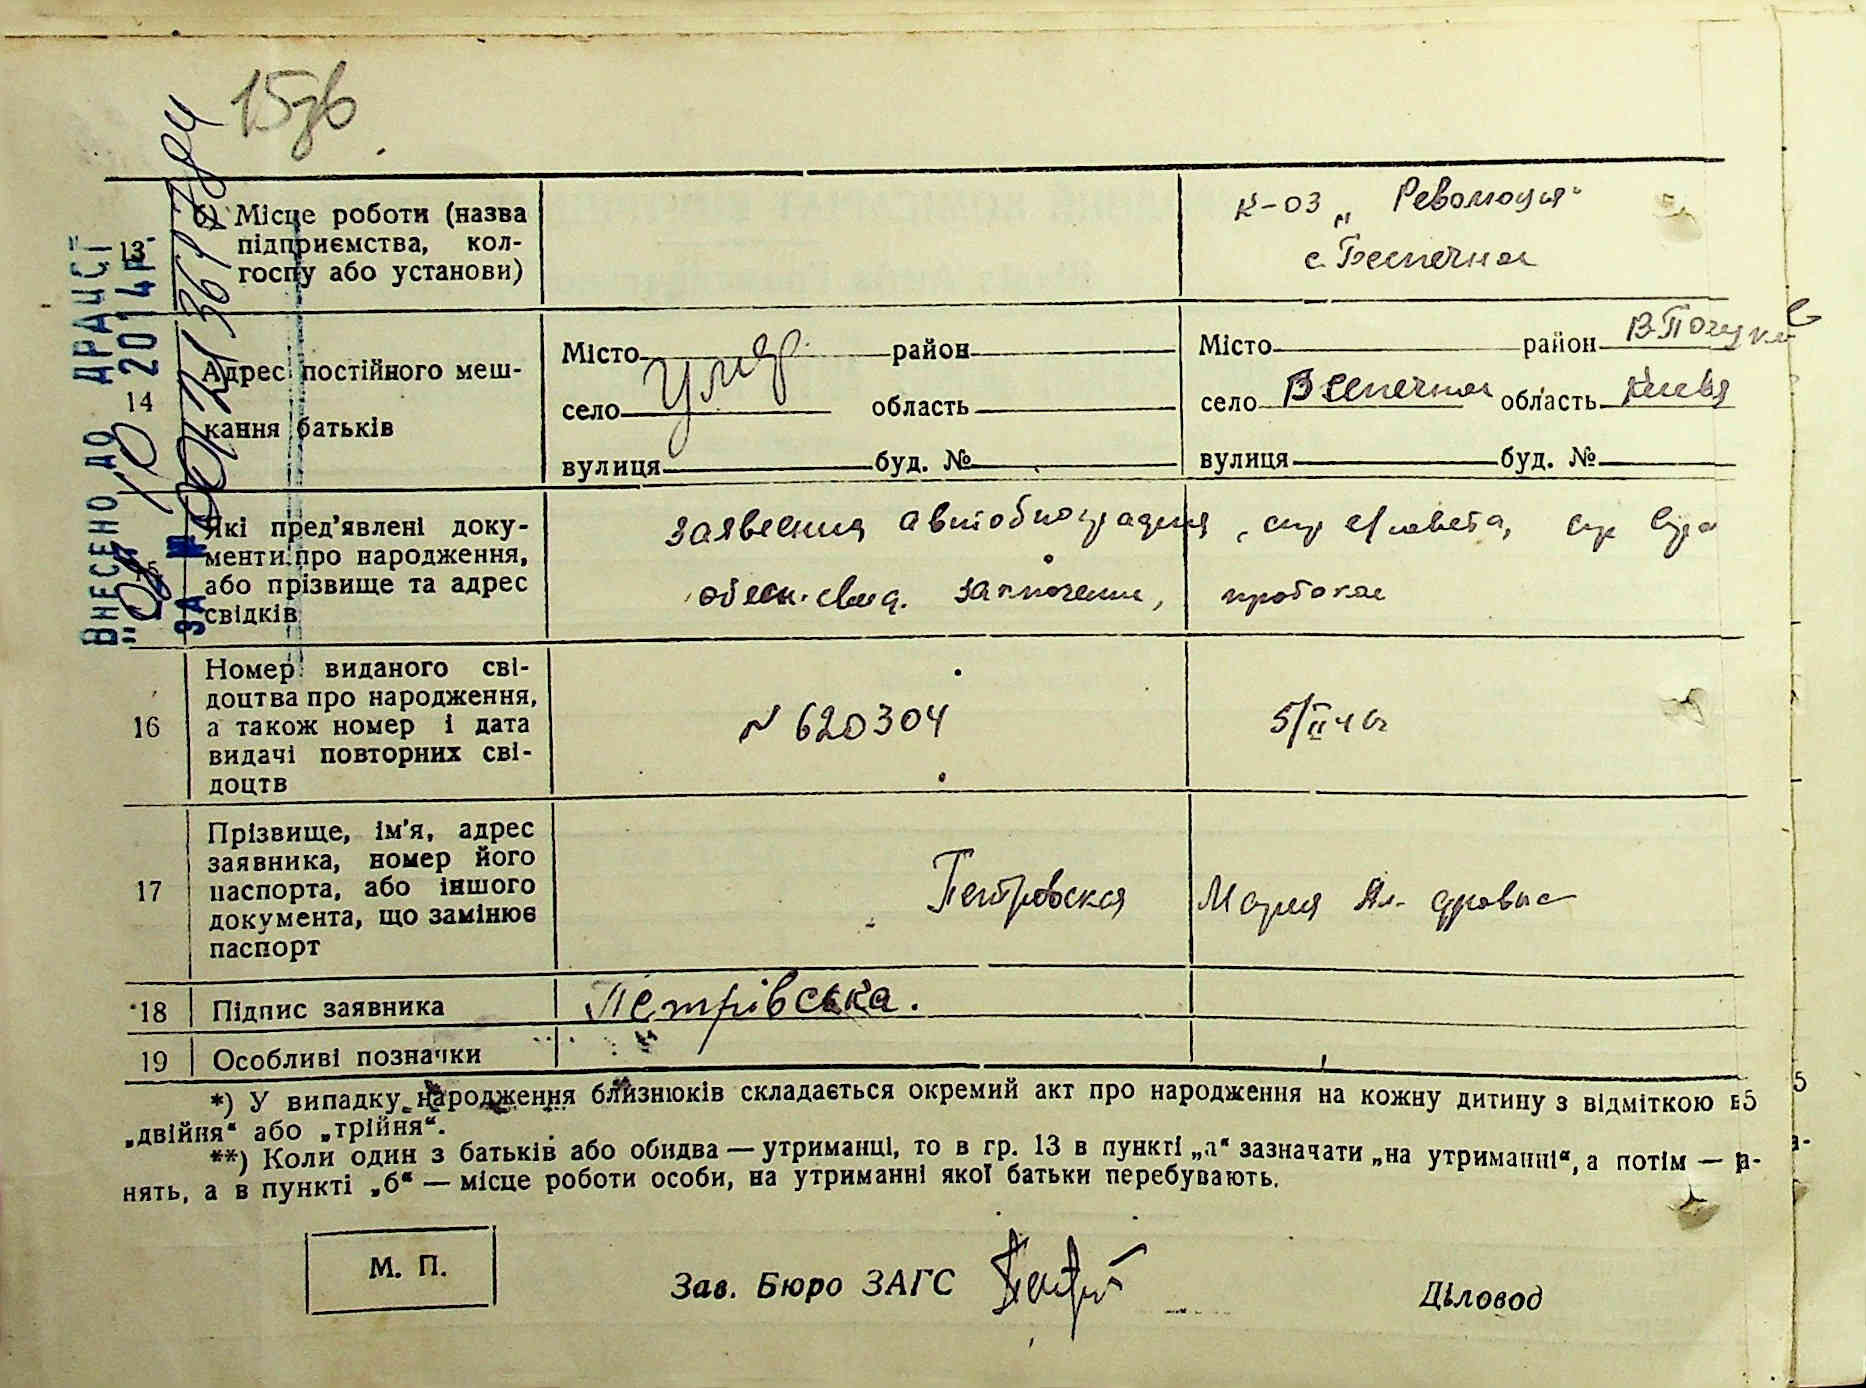 15зв
ВНЕСЕНО ДО ДРАЦСГ
"09" 10 2014р
ЗА № 00121369178
13
б) Місце роботи (назва підприємства, кол-
госпу або установи)
к-оз „Революция"
с. Беспечное
14
Адрес постійного меш-
кання батьків
Місто район
умер
село область
вулиця буд. №
Місто район В-Поч
село Беспечная область Киевс
вулиця буд. №
Які пред'явлені доку-
менти про народження,
або прізвище та адрес
свідків
заявления автобиография, спр с/совета, спр
свид. заключение, протокол
16
Номер виданого сві-
доцтва про народження,
а також номер і дата
видачі повторних сві-
доцтв
N 620304
5/II 46
17
Прізвище, ім'я, адрес
заявника, номер його
паспорта, або іншого
документа, що замінює
паспорт
Петровская Мария
18 Підпис заявника Петрівська.
19 Особливі позначки
*) У випадку народження близнюків складається окремий акт про народження на кожну дитину з відміткою
„двійня" або „трійня".
**) Коли один з батьків або обидва — утриманці, то в гр. 13 в пункті „а" зазначати „на утриманні", а потім —
нять, а в пункті „б" — місце роботи особи, на утриманні якої батьки перебувають.
М. П.
Зав. Бюро ЗАГС
Діловод